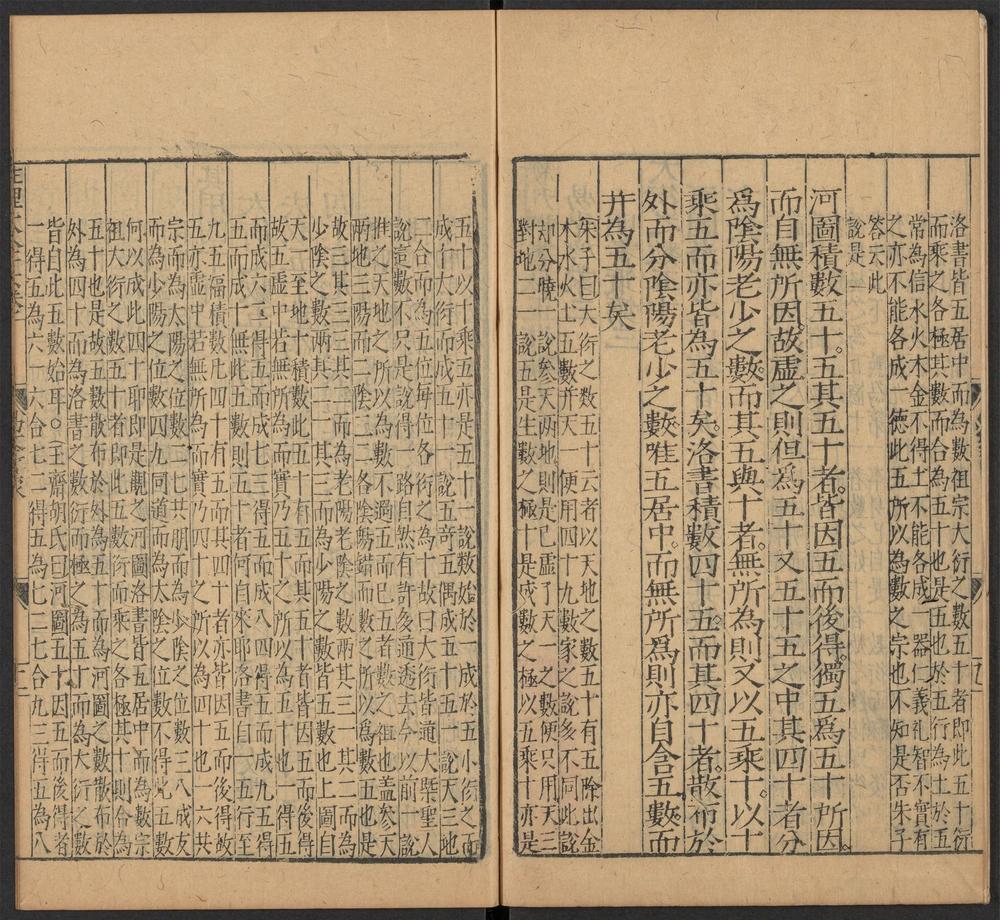 洛書皆五居中而為数祖宗大衍之数五十者即此五十衍
而乗之各極其數而合為五十也是五也於五行為土於五
常為信水火木金不得土不能各成一器仁義礼智不實有
之亦不能各成一徳此五所以為數之宗也不知是否朱子
答云此
說是
河圖積數五十五其五十者皆因五而後得獨五為五十所因
而自無所因故虛之則但為五十又五十五之中其四十者分
為陰陽老少之數而其五與十者無所為則又以五乘十以十
乘五而亦皆為五十矣洛書積數四十五而其四十者散布於
外而分陰陽老少之數唯五居中而無所為則亦自含五數而
并為五十矣
朱子曰大衍之数五十云者以天地之數五十有五除出金
木水火土五數并天一便用四十九數家之說多不同此說
却分曉一說參天兩地則是已虛了天一之數便只用天三
對地二一說五是生數之極十是成數之極以五乗十亦是
五十以十乗五亦是五十一說数始於一成於五小衍之而
成十大衍而成五十一說五奇五偶成五十五一說天三地
二合而為五位每位各衍之為十故曰大衍皆通大槩聖人
說這數不只是說得一路自然有許多通透去今以前十說
推之天地之所以為數不過五而已五者數之祖也盖參天
兩地三陽而二陰三二各陰陽錯而數之所以為數五也是
故三其三三其二而為老陽老陰之數兩其三一其二而為
少陰之數兩其二一其三而為少陽之數皆五數也上圖自
天一至地十積數此五十有五而其五十者皆因五而後得
故五虛中若無所為而實乃五十之所以為五十也一得五
而成六二得五而成七三得五而成八四得五而成九五得
五而成十無此五數則五十者何自來耶洛書自一五行至
九五福積數凡四十有五而其四十者亦皆因五而後得故
五亦虛中若無所為而實乃四十之所以為四十也一六共
宗而為太陽之位數二七共朋而為少陰之位數三八成友
而為少陽之位數四九同道而為太陰之位數不得此五數
何以成此四十耶即是觀之河圖洛書皆五居中而為數宗
祖大衍之數五十者即此五數衍而乗之各極其十則合為
五十也是故五數散布於外為五十而為河圖之數散布於
外為四十而為洛書之數衍而極之為五十而為大衍之數
皆自此五數始耳○玉齋胡氏曰河圖五十因五而後得者
一得五為六一六合七二得五為七二七合九三得五為八
性理大全